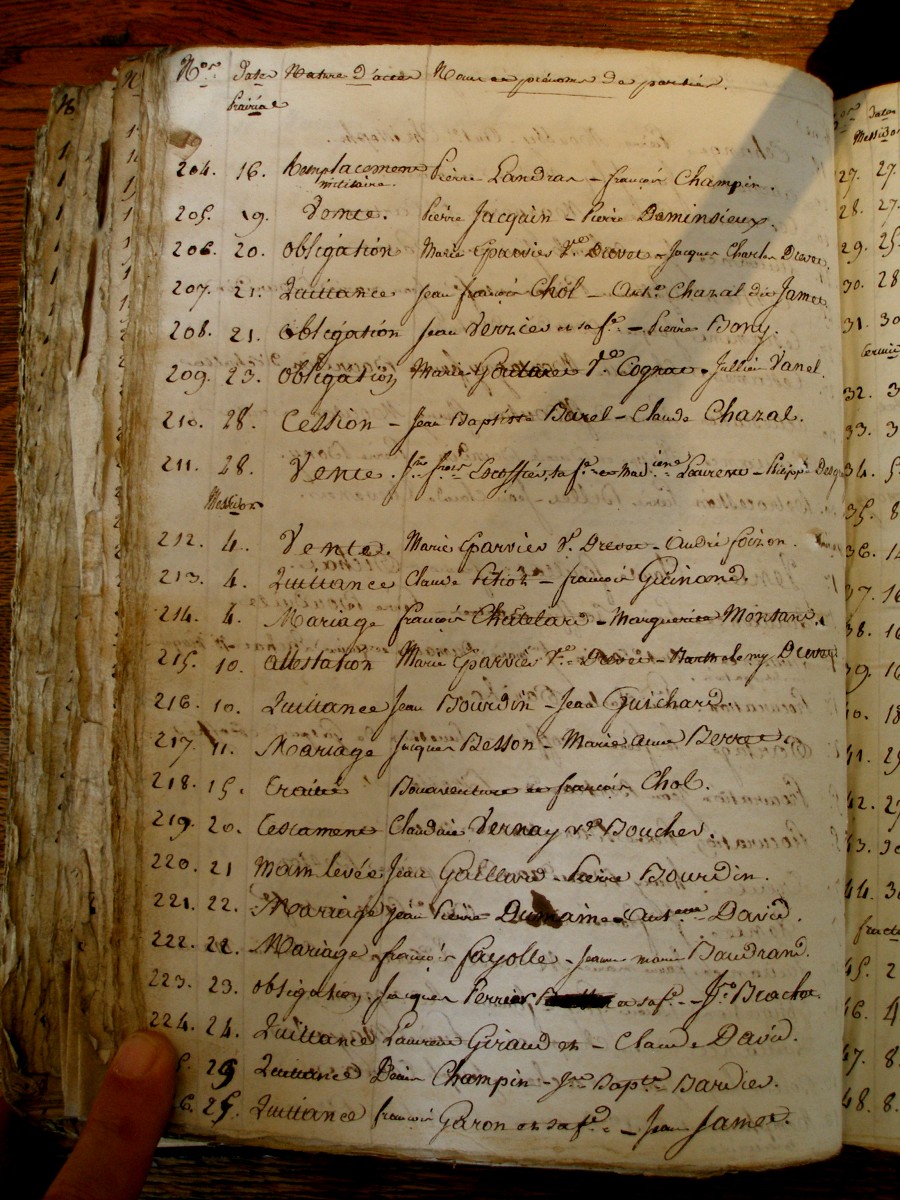 Nos Dates Nature d'actes Noms et prénoms de parties.
Prairial
204. 16. Remplacement militaire. Pierre Landras - françois Champin.
205. 19. Vente. Pierre Jacquin - Pierre Daminsieux.
206. 20. Obligation Marie Garvies Ve. Drevet - Jacques Charles Drevet
207. 21. Quittance Jean françois Chol - Ant.e Chazal dit Jamet
208. 21. Obligation Jean Verzier et sa fe. - Pierre Bony.
209. 23. Obligation Marie Ve. Cognat - Jullien Vanel.
210. 28. Cession - Jean Baptiste Burel - Claude Chazal.
211. 28. Vente. Escoffier, sa fe. et Laurent - Philippe
Messidor
212. 4. Vente. Marie Garvies Ve. Drevet - André Poizon.
213. 4. Quittance Claude Pitiot - françois Guinand.
214. 4. Mariage françois Châtelard - Marguerite Montant
215. 10. attestation Marie Garvies Ve. Drevet - Barthelemy Drevet
216. 10. Quittance Jean Bourdin - Jean Guichard.
217. 11. Mariage Jacques Besson - Marie anne Berret.
218. 15. Traité Bonaventure et françois Chol.
219. 20. Testament Claudine Vernay Ve. Boucher.
220. 21 Main levée Jean Gaillard - Pierre Bourdin.
221. 22. Mariage Jean Pierre Dumaine - Ant.ette David.
222. 22. Mariage françois fayolle - Jeanne marie Baudrand.
223. 23. obligation Jacques Perrier, et sa fe. - Brachet
224. 24. Quittance Laurent Giraud et - Claude David.
25. Quittance Champin - Bapte. Bardier.
25. Quittance françois Garon et sa fe. - Jean Jamet.
Dates
Messidor
27. 27.
28. 27.
29. 25.
30. 28
31. 30
32. 3
33. 3
34. 5
35. 8
36. 1
37. 16
38. 16
39. 16
40. 18
41. 25
42. 27
43. 30
44. 30
45. 2
46. 4
47. 8
48. 8.